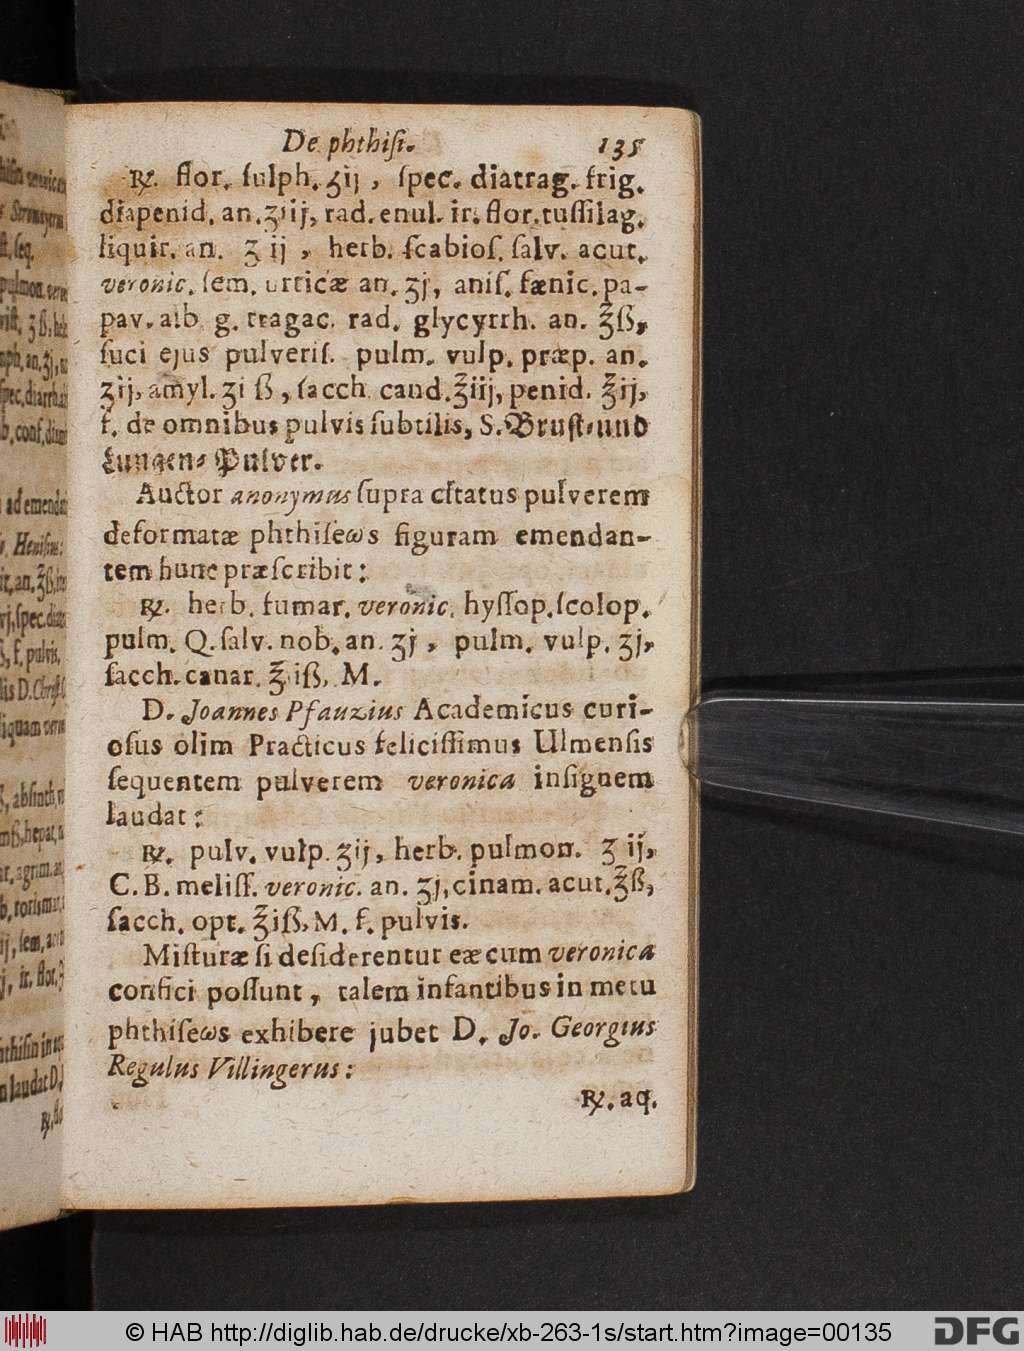 De phthiſi. 135
℞. flor. ſulph. ʒij, ſpec. diatrag. frig.
diapenid. an. ʒiij, rad. enul. ir. flor. tuſſilag.
liquir. an. ʒ ij, herb. ſcabioſ. ſalv. acut.
veronic. ſem. urticæ an. ʒj, aniſ. fænic. pa-
pav. alb g. tragac. rad. glycyrrh. an. ℥ß,
ſuci ejus pulveriſ. pulm. vulp. præp. an.
ʒij, amyl. ʒi ß, ſacch. cand. ℥iij, penid. ℥ij,
f. de omnibus pulvis ſubtilis, S. Bruſt⸗und
Lungen⸗ Pulver.
Auctor anonymus ſupra citatus pulverem
deformatæ phthiſeωs figuram emendan-
tem hunc præſcribit:
℞. herb. fumar. veronic. hyſſop. ſcolop.
pulm. Q. ſalv. nob. an. ʒj, pulm. vulp. ʒj,
ſacch. canar. ℥iß, M.
D. Joannes Pfauzius Academicus curi-
oſus olim Practicus feliciſſimus Ulmenſis
ſequentem pulverem veronica inſignem
laudat:
℞. pulv. vulp. ʒij, herb. pulmon. ʒ ij,
C. B. meliſſ. veronic. an. ʒj, cinam. acut. ℥ß,
ſacch. opt. ℥iß, M. f. pulvis.
Miſturæ ſi deſiderentur eæ cum veronica
confici poſſunt, talem infantibus in metu
phthiſeωs exhibere jubet D. Jo. Georgius
Regulus Villingerus:
℞. aq.
© HAB http://diglib.hab.de/drucke/xb-263-1s/start.htm?image=00135
DFG